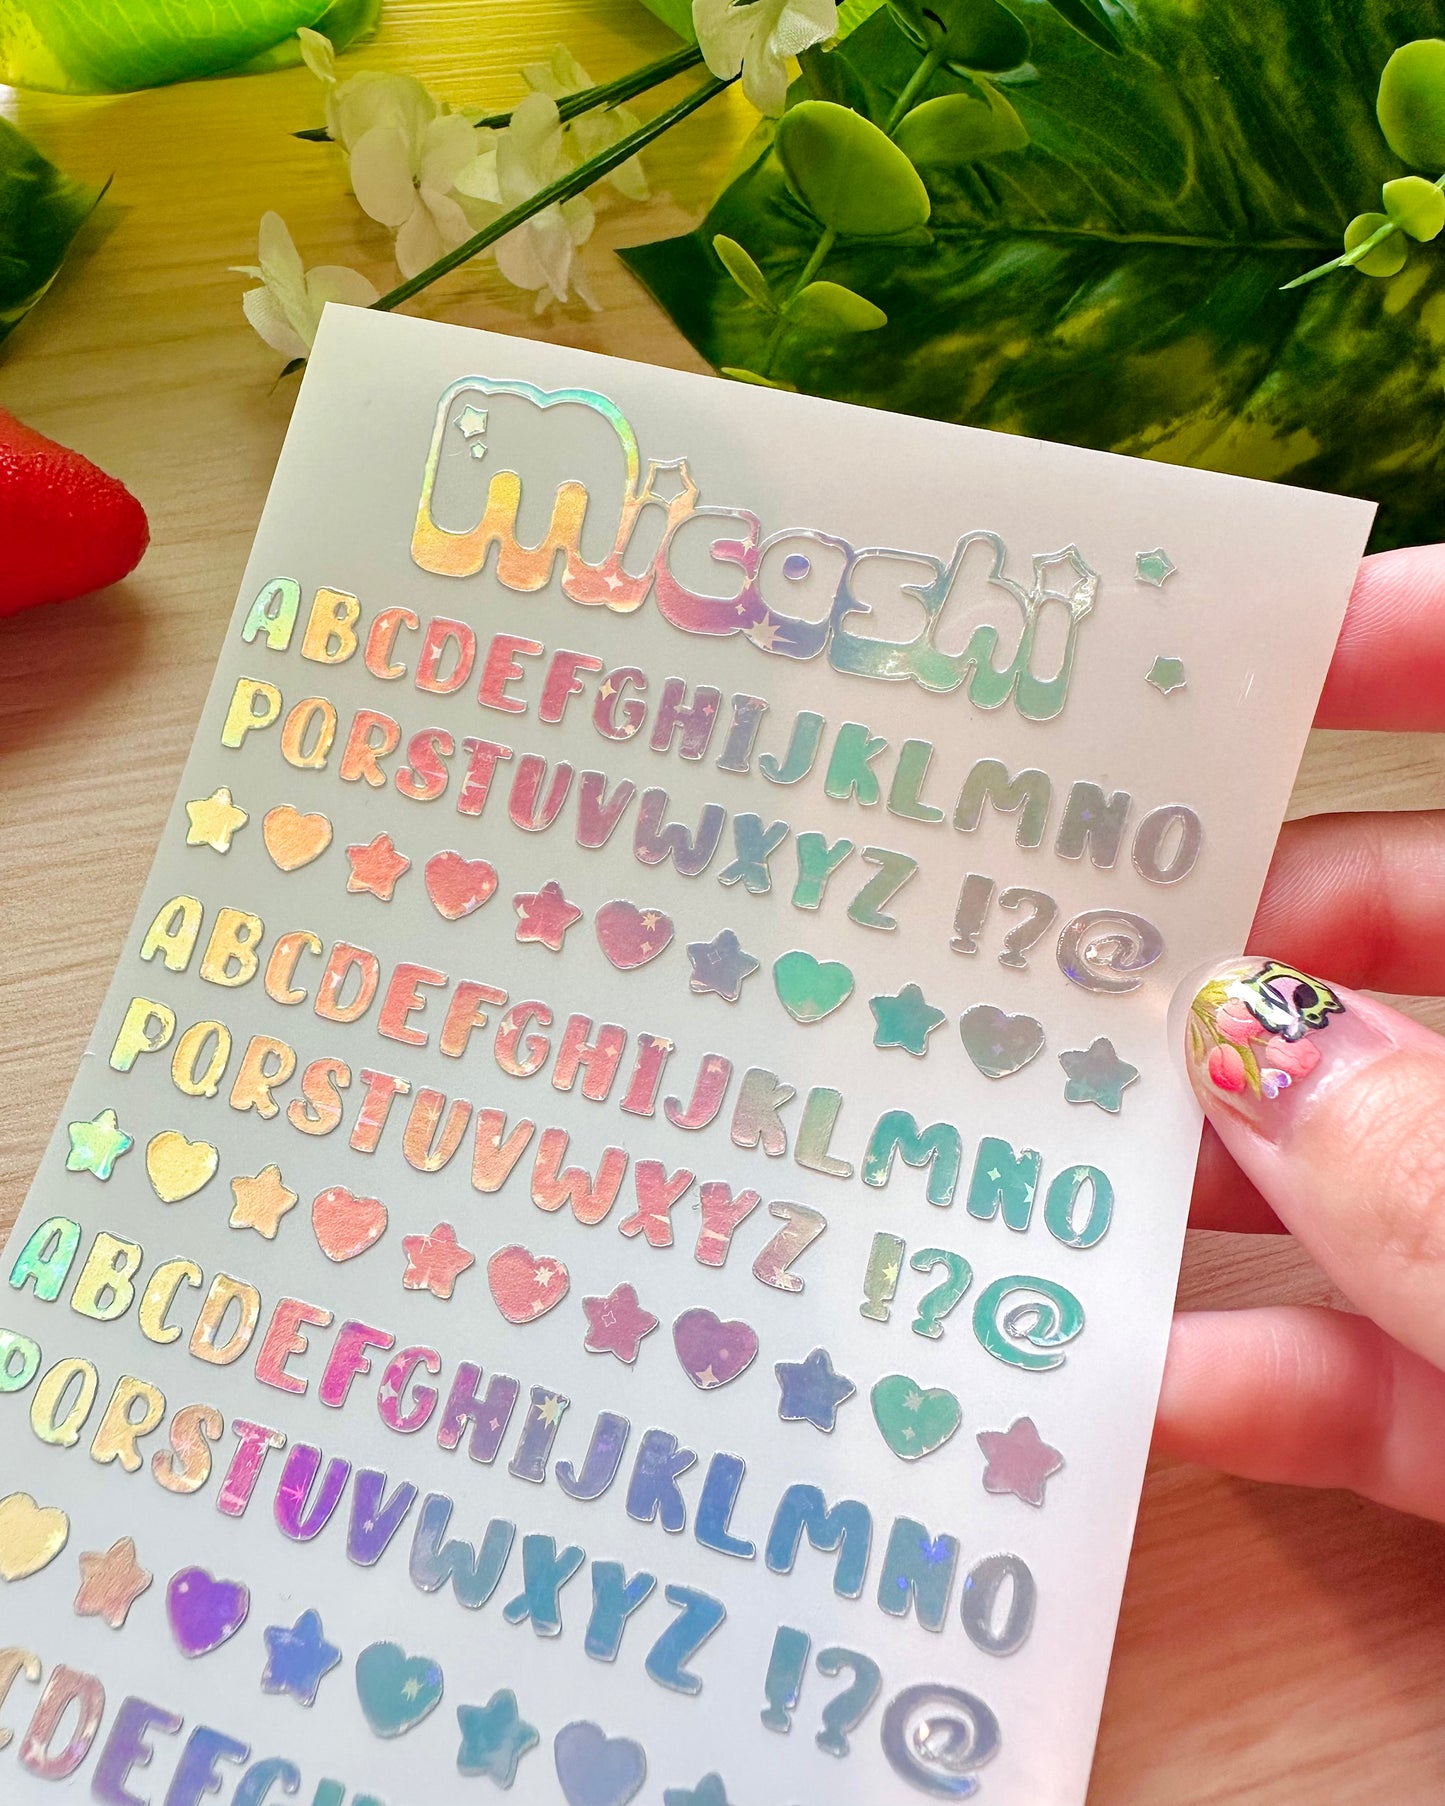 micashi
ABCDEFGHIJKLMNO
PQRSTUVWXYZ !?@
ABCDEFGHIJKLMNO
PQRSTUVWXYZ !?@
ABCDEFGHIJKLMNO
PQRSTUVWXYZ !?@
CDEFGHI